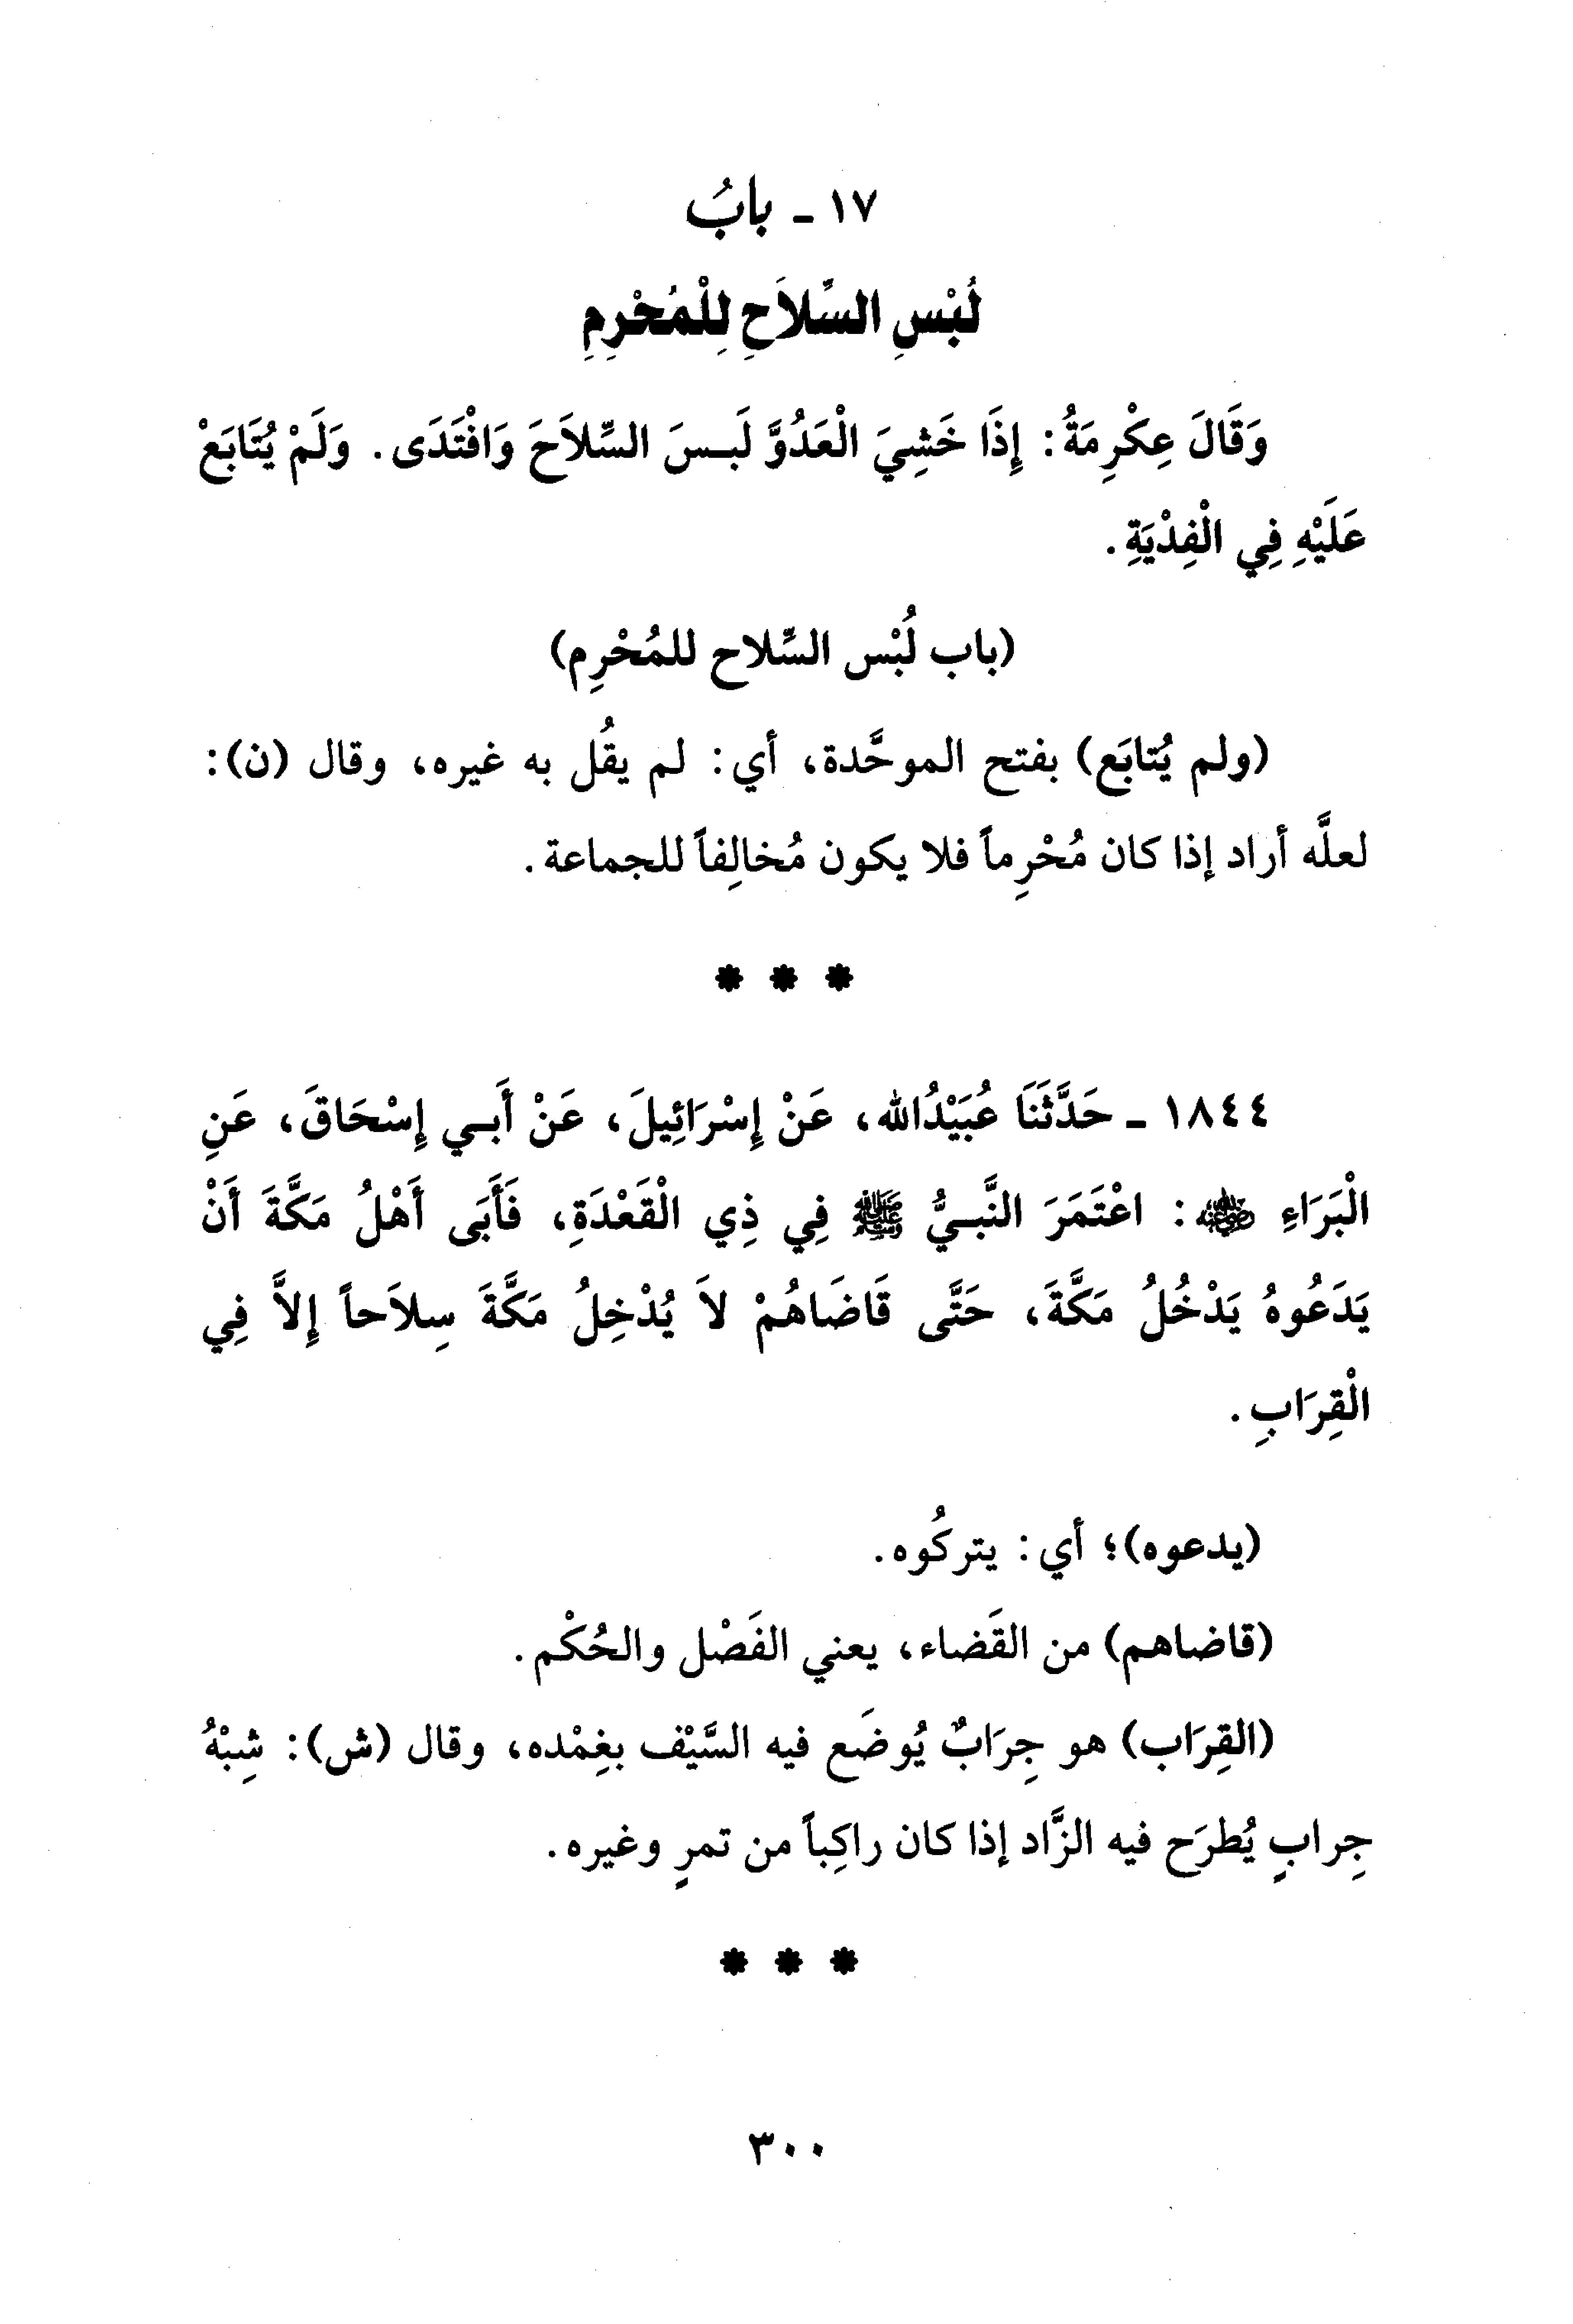 ١٧ - بابُ
لُبْسِ السِّلاَحِ لِلْمُحْرِمِ
وَقَالَ عِكْرِمَةُ: إِذَا خَشِيَ الْعَدُوَّ لَبِسَ السِّلاَحَ وَافْتَدَى. وَلَمْ يُتَابَعْ
عَلَيْهِ فِي الْفِدْيَةِ.
(باب لُبْس السِّلاح للمُحْرِم)
(ولم يُتابَع) بفتح الموحَّدة، أي: لم يقُل به غيره، وقال (ن):
لعلَّه أراد إذا كان مُحْرِماً فلا يكون مُخالِفاً للجماعة.
* * *
١٨٤٤ - حَدَّثَنَا عُبَيْدُالله، عَنْ إِسْرَائِيلَ، عَنْ أَبِي إِسْحَاقَ، عَنِ
الْبَرَاءِ ﵁: اعْتَمَرَ النَّبِيُّ ﷺ فِي ذِي الْقَعْدَةِ، فَأَبَى أَهْلُ مَكَّةَ أَنْ
يَدَعُوهُ يَدْخُلُ مَكَّةَ، حَتَّى قَاضَاهُمْ لاَ يُدْخِلُ مَكَّةَ سِلاَحاً إِلاَّ فِي
الْقِرَابِ.
(يدعوه)؛ أي: يتركُوه.
(قاضاهم) من القَضاء، يعني الفَصْل والحُكْم.
(القِرَاب) هو جِرَابٌ يُوضَع فيه السَّيْف بغِمْده، وقال (ش): شِبْهُ
جِرابٍ يُطرَح فيه الزَّاد إذا كان راكِباً من تمرٍ وغيره.
* * *
٣٠٠